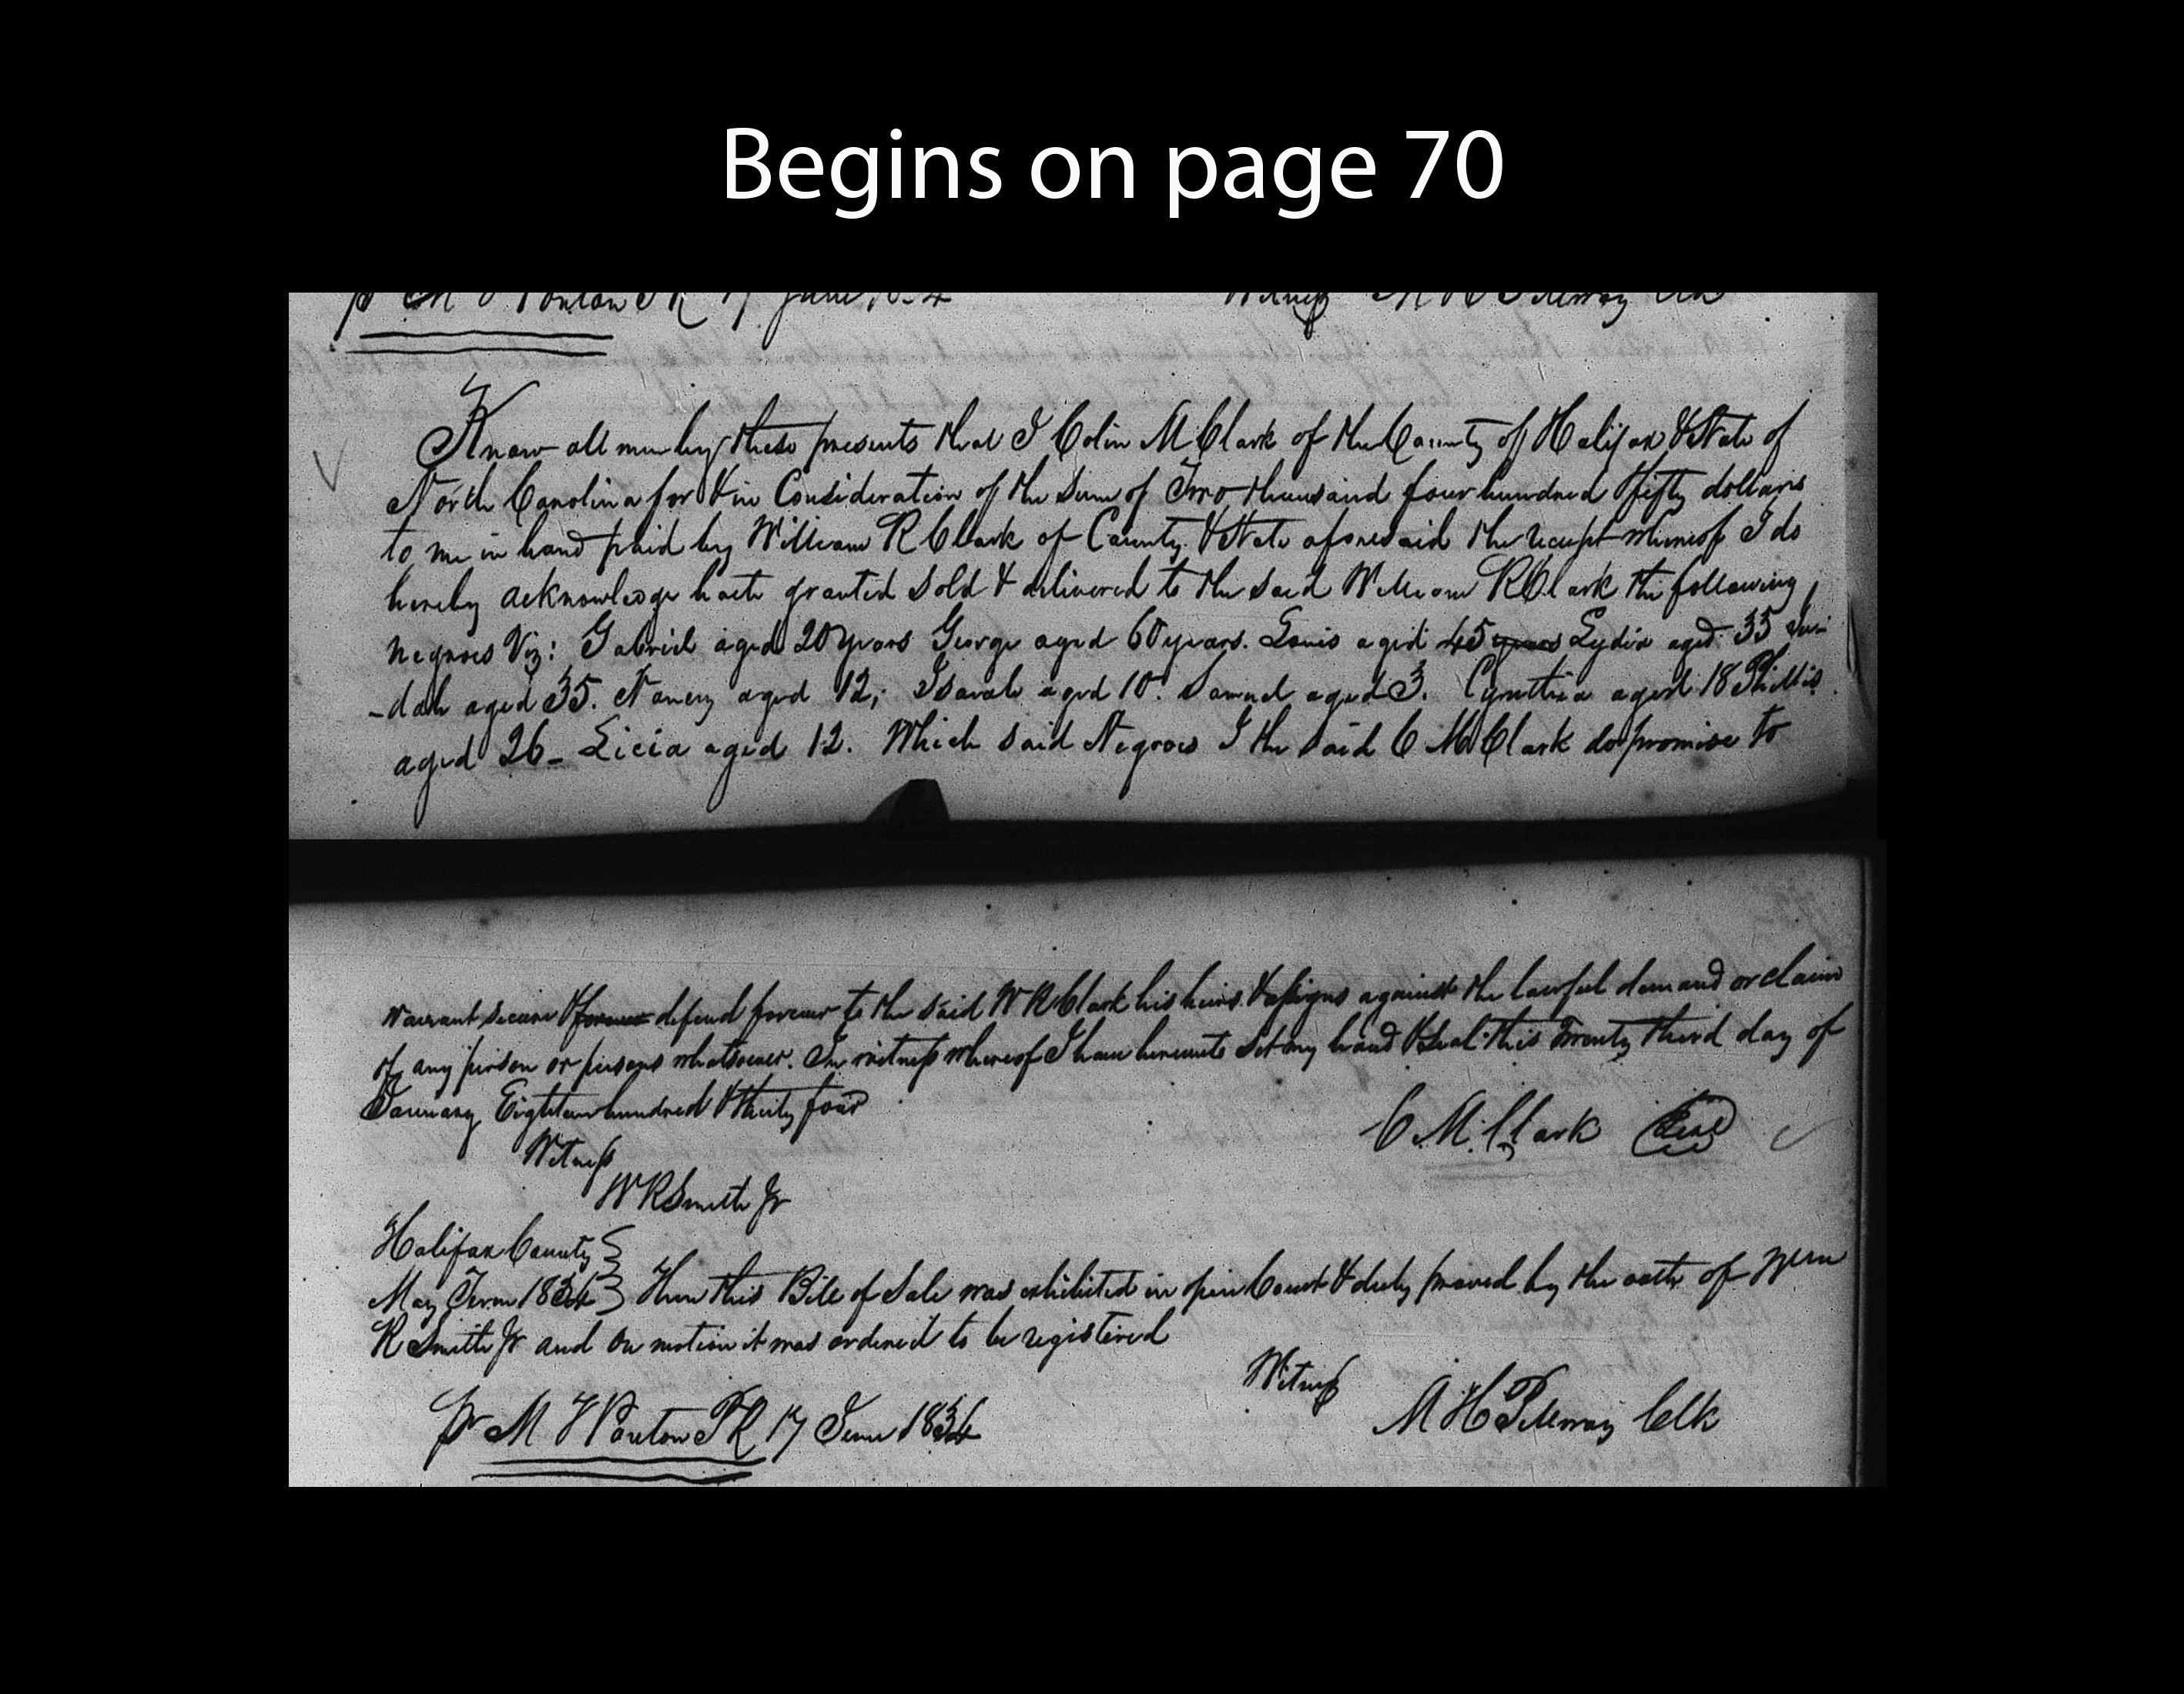 Begins on page 70
Witness M H Pittway Clk
Know all men by these presents that I Colin M Clark of the County of Halifax & State of
North Carolina for & in Consideration of the sum of Two thousand four hundred & fifty dollars
to me in hand paid by William R Clark of County & State aforesaid the receipt whereof I do
hereby acknowledge hath granted sold & delivered to the said William R Clark the following
negroes Viz: Gabriel aged 20 years George aged 60 years. Louis aged 45 years Lydia aged 35
-dah aged 35. Nancy aged 12; Isarah aged 10. Samuel aged 3. Cynthia aged 18 Phillis
aged 26_ Licia aged 12. Which said Negroes I the said C M Clark do promise to
warrant secure & forever defend forever to the said W R Clark his heirs & assigns against the lawful demand or claim
of any person or persons whatsoever. In witness whereof I have hereunto set my hand & seal this Twenty third day of
January Eighteen hundred & thirty four
C. M. Clark Seal
Witness
W R Smith Jr
Halifax County
May Term 1834 Then this Bill of Sale was exhibited in open Court & duly proved by the oath of Wm
R Smith Jr and on motion it was ordered to be registered
Witness M H Pittway Clk
pr M F Ponton PR 17 June 1834